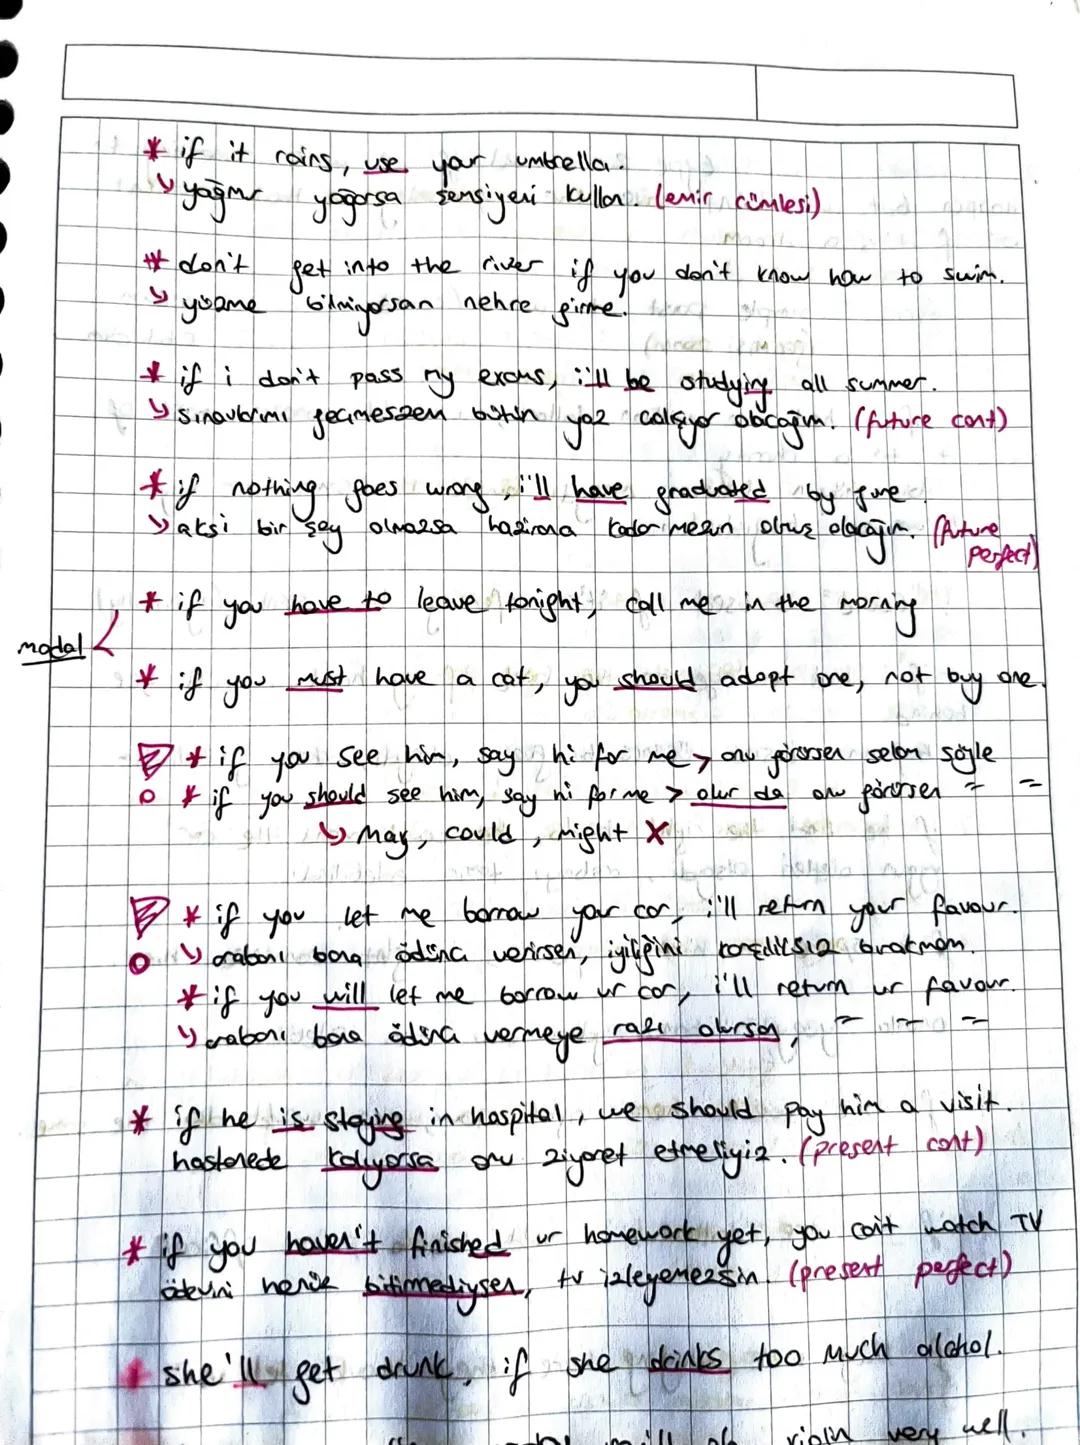 * if it rains, use your umbrella.
↳ yağmur yağarsa şemsiyeni kullan. (emir cümlesi)
* don't get into the river if you don't know how to swim.
↳ yüzme bilmiyorsan nehre girme.
* if i don't pass my exams, i'll be studying all summer.
↳ sınavlarımı geçemezsem bütün yaz çalışıyor olacağım. (future cont)
* if nothing goes wrong, i'll have graduated by june.
↳ aksi bir şey olmazsa hazirana kadar mezun olmuş olacağım. (future perfect)
* if you have to leave tonight, call me in the morning
modal <
* if you must have a cat, you should adopt one, not buy one.
* if you see him, say hi for me > onu görürsen selam söyle
* if you should see him, say hi for me > olur da onu görürsen = =
↳ may, could, might X
* if you let me borrow your car, i'll return your favour.
↳ arabanı bana ödünç verirsen, iyiliğini karşılıksız bırakmam.
* if you will let me borrow ur car, i'll return ur favour.
↳ arabanı bana ödünç vermeye razı olursan, = = =
* if he is staying in hospital, we should pay him a visit.
hastanede kalıyorsa onu ziyaret etmeliyiz. (present cont)
* if you haven't finished ur homework yet, you can't watch TV
ödevini henüz bitirmediysen, tv izleyemezsin. (present perfect)
* she'll get drunk, if she drinks too much alcohol.
very well.